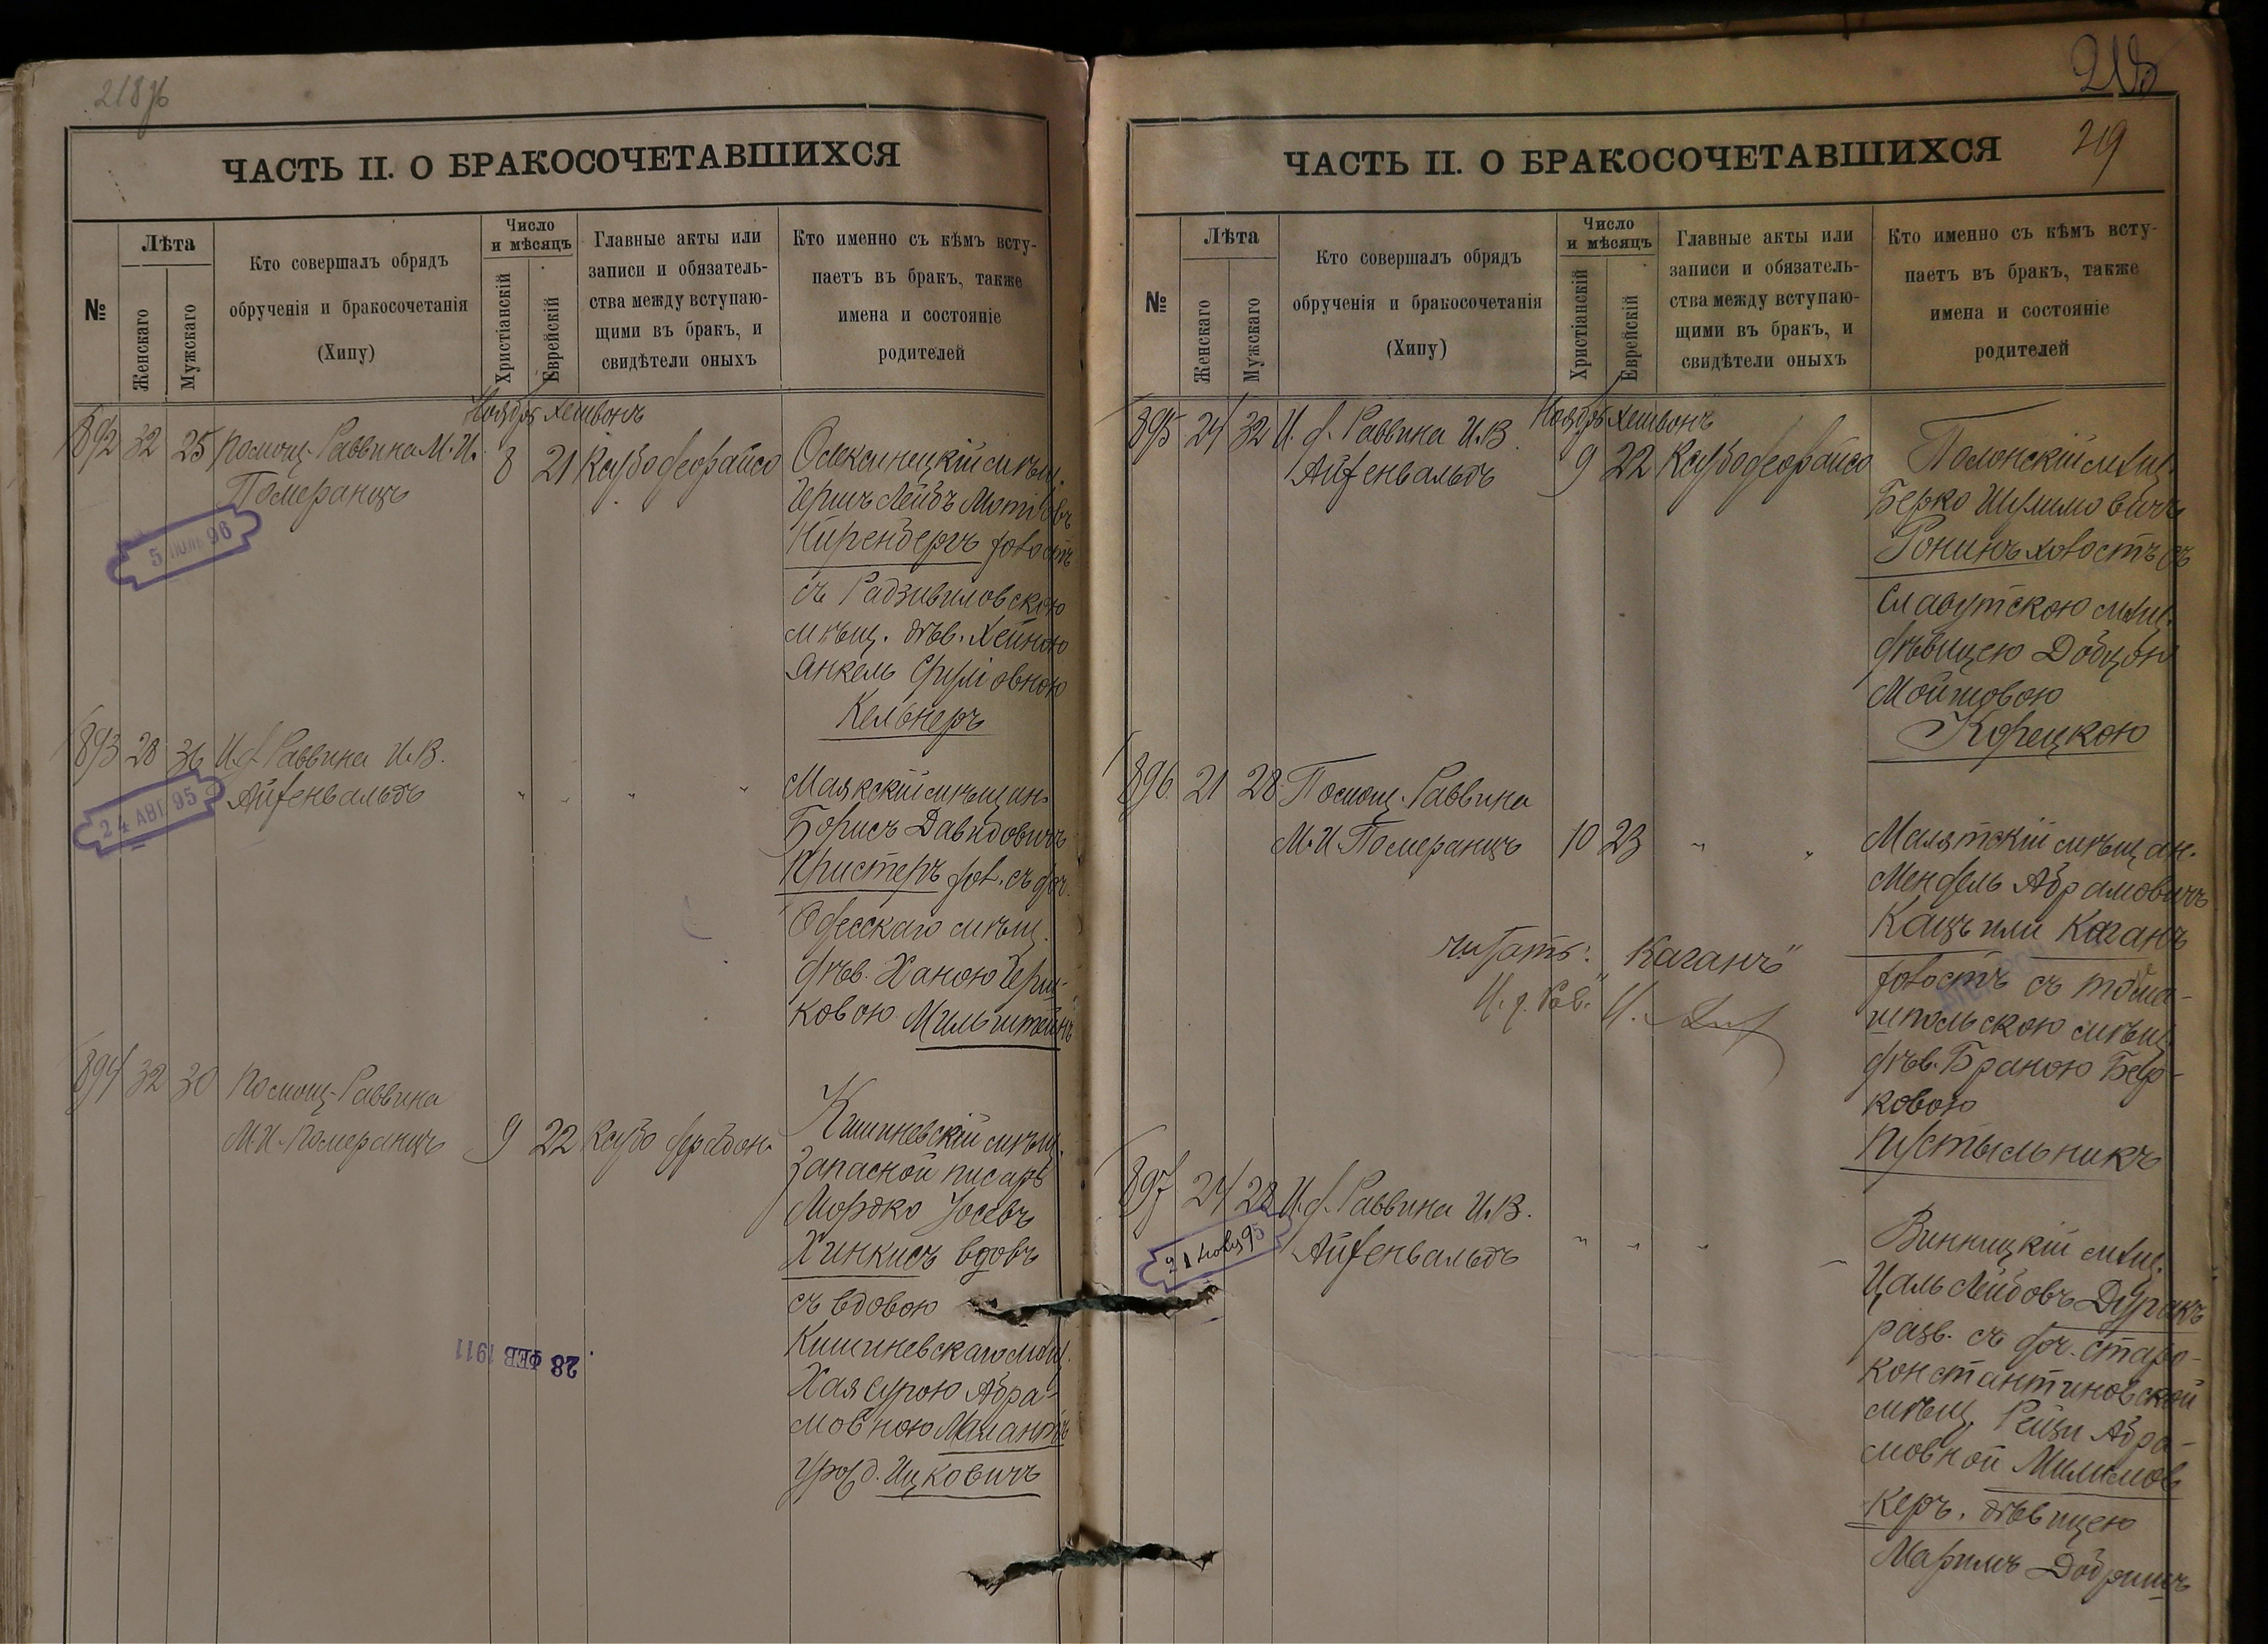 218 об
ЧАСТЬ II. О БРАКОСОЧЕТАВШИХСЯ
№
Лѣта
Женскаго
Мужскаго
Кто совершалъ обрядъ
обрученія и бракосочетанія
(Хипу)
Число
и мѣсяцъ
Христіанскій
Еврейскій
Главные акты или
записи и обязатель-
ства между вступаю-
щими въ бракъ, и
свидѣтели оныхъ
Кто именно съ кѣмъ всту-
паетъ въ бракъ, также
имена и состояніе
родителей
Ноября Хешвонъ
892 32 25 Помощ. Раввина М. И.
Померанцъ
8 21
5 ІЮЛЬ 96
мѣщ.
Гершъ Лейбъ
Ниренбергъ холост
съ Радзивиловскою
мѣщ. дѣв. Хейною
Янкель Сруліовною
Кельнеръ
893 28 36 И. д. Раввина И. В.
Айзенвальдъ
24 АВГ 95
" " " "
Маякскій мѣщан.
Борисъ Давидовичъ
Пристеръ хол. съ доч.
Одесскаго мѣщ.
дѣв. Ханою Герш-
ковою Мильштейнъ
894 32 30 Помощ. Раввина
М. И. Померанцъ
9 22
Кишиневскій мѣщ.
запасной писарь
Мордко Іосевъ
Хинкисъ вдовъ
съ вдовою
Кишиневскаго мѣщ.
Хая Сурою Абра-
мовною
урожд. Ицковичъ
28 ФЕВ 1911
219
ЧАСТЬ II. О БРАКОСОЧЕТАВШИХСЯ
№
Лѣта
Женскаго
Мужскаго
Кто совершалъ обрядъ
обрученія и бракосочетанія
(Хипу)
Число
и мѣсяцъ
Христіанскій
Еврейскій
Главные акты или
записи и обязатель-
ства между вступаю-
щими въ бракъ, и
свидѣтели оныхъ
Кто именно съ кѣмъ всту-
паетъ въ бракъ, также
имена и состояніе
родителей
Ноября Хешвонъ
895 24 32 И. д. Раввина И. В.
Айзенвальдъ
9 22
Полонскій мѣщ.
Берко Шулимовичъ
Ронинъ холостъ съ
Славутскою мѣщ.
дѣвицею Добцою
Мойшовою
Корецкою
896 21 28 Помощ. Раввина
М. И. Померанцъ
10 23 " "
Малятскій мѣщан.
Мендель Абрамовичъ
Кацъ или Каганъ
холостъ съ тома-
шпольскою мѣщ.
дѣв. Браною Бер-
ковою
Пустыльникъ
читать: "Каганъ"
И. д. Рав.
897 24 28 И. д. Раввина И. В.
Айзенвальдъ
21 95
" " "
Винницкій мѣщ.
Цаль Лейбовъ Дуракъ
разв. съ доч. старо-
константиновской
мѣщ. Рейзи Абра-
мовной
керъ. дѣвицею